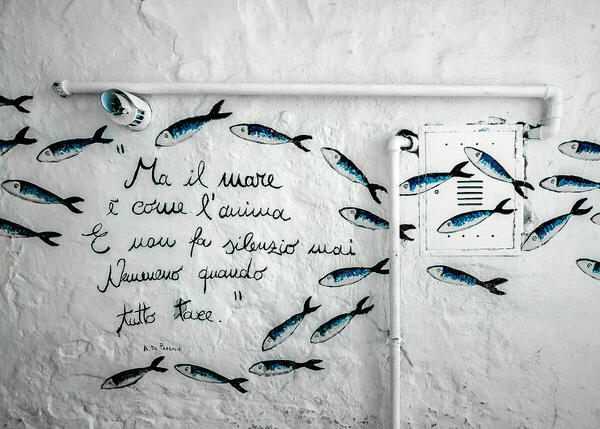 "Ma il mare
è come l'anima
E non fa silenzio mai
Nemmeno quando
tutto tace."
A. De Pascalis